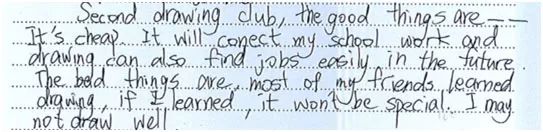 Second drawing club, the good things are ——
It's cheap. It will conect my school work and
drawing can also find jobs easily in the future.
The bad things are, most of my friends learned
drawing, if I learned, it won't be special. I may
not draw well.